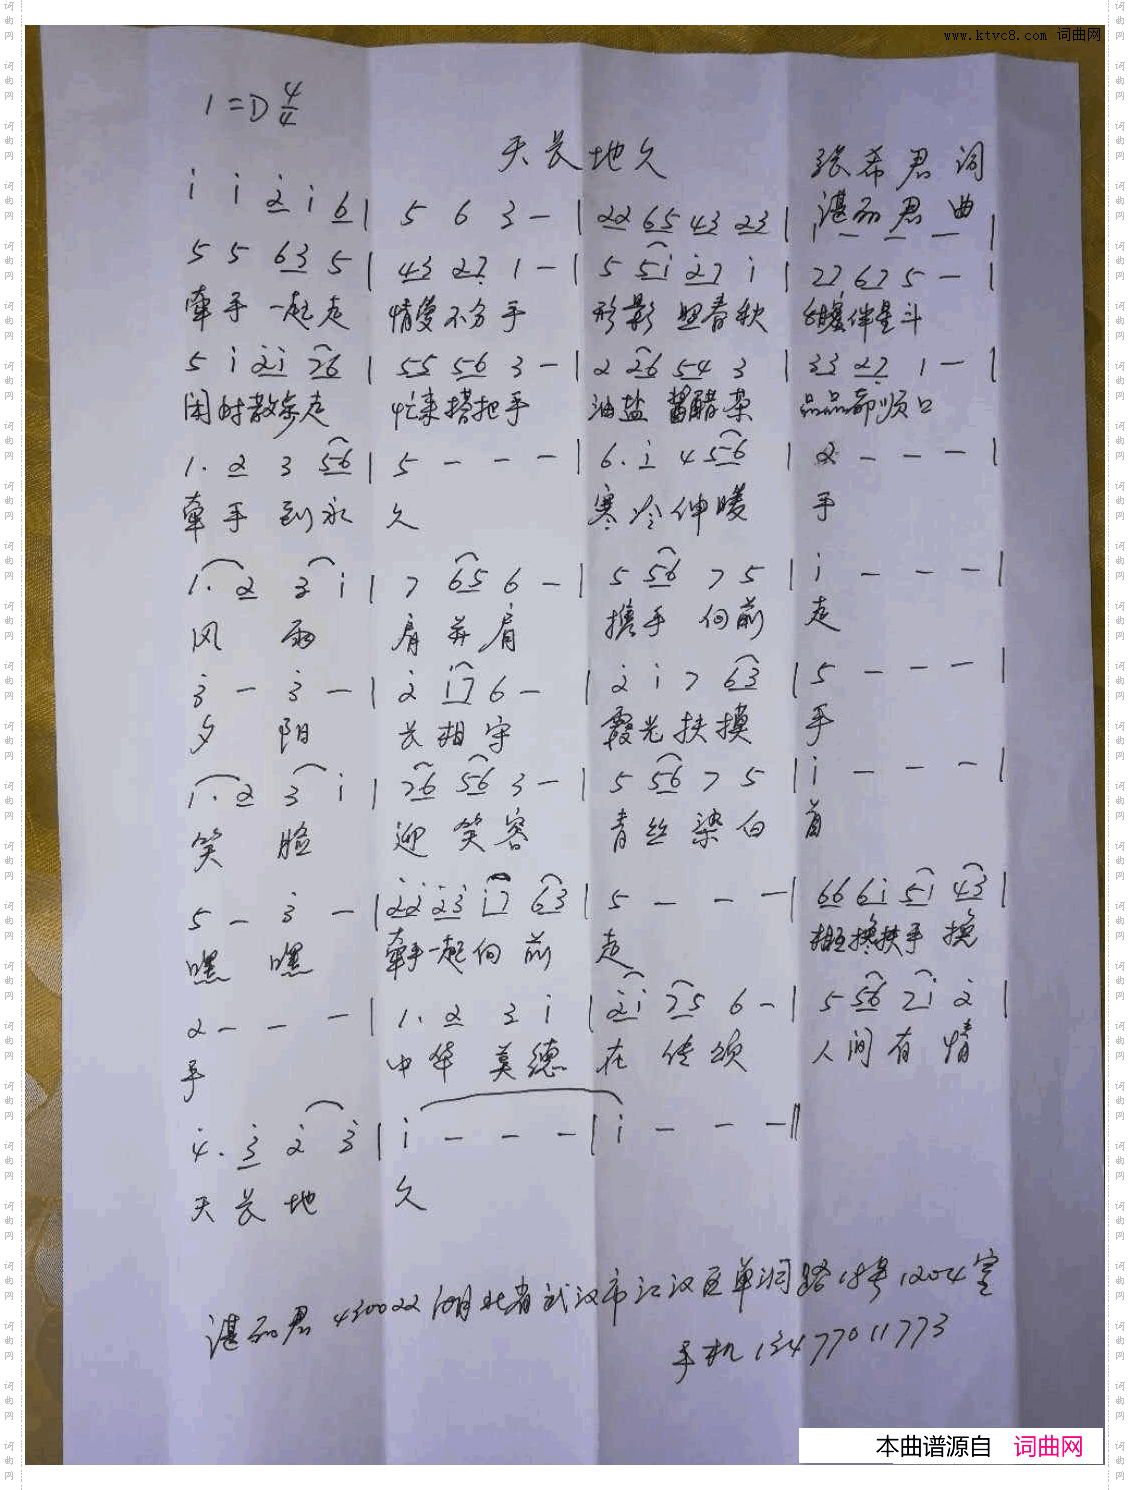 www.ktvc8.com 词曲网
1=D 4/4
天长地久
张希君 词
湛丽君 曲
i i 2̇ i 6 | 5 6 3 - | 22 65 43 23 | 1 - - - |
5 5 63 5 | 43 27 1 - | 5 5i 2̇7 i | 27 67 5 - |
牵手一起走 情爱不分手 形影迎春秋 暖伴星斗
5 i 2̇i 76 | 55 56 3 - | 2 26 54 3 | 33 27 1 - |
闲时散步走 忙来搭把手 油盐酱醋茶 品品都顺口
1. 2 3 56 | 5 - - - | 6. i 4 56 | 2 - - - |
牵手到永 久 寒冷伸暖 手
1. 2 3 i | 7 65 6 - | 5 56 7 5 | i - - - |
风 雨 肩并肩 携手向前 走
3̇ - 3̇ - | 2̇ i7 6 - | 2̇ i 7 63 | 5 - - - |
夕 阳 长相守 霞光扶摸 手
1. 2 3 i | 76 56 3 - | 5 56 7 5 | i - - - |
笑 脸 迎笑容 青丝染白 首
5 - 3̇ - | 2̇2̇ 2̇3 i7 63 | 5 - - - | 66 6i 5i 43 |
嘿 嘿 牵手一起向前 走 相互搀扶手搀
2 - - - | 1. 2 3 i | 2̇i 75 6 - | 5 56 7i 2̇ |
手 中华美德 在传颂 人间有情
4̇. 3̇ 2̇ 3̇ | i - - - | i - - - ‖
天长地 久
湛丽君 430022 湖北省武汉市江汉区单洞路18号1204室
手机 13477011773
本曲谱源自 词曲网